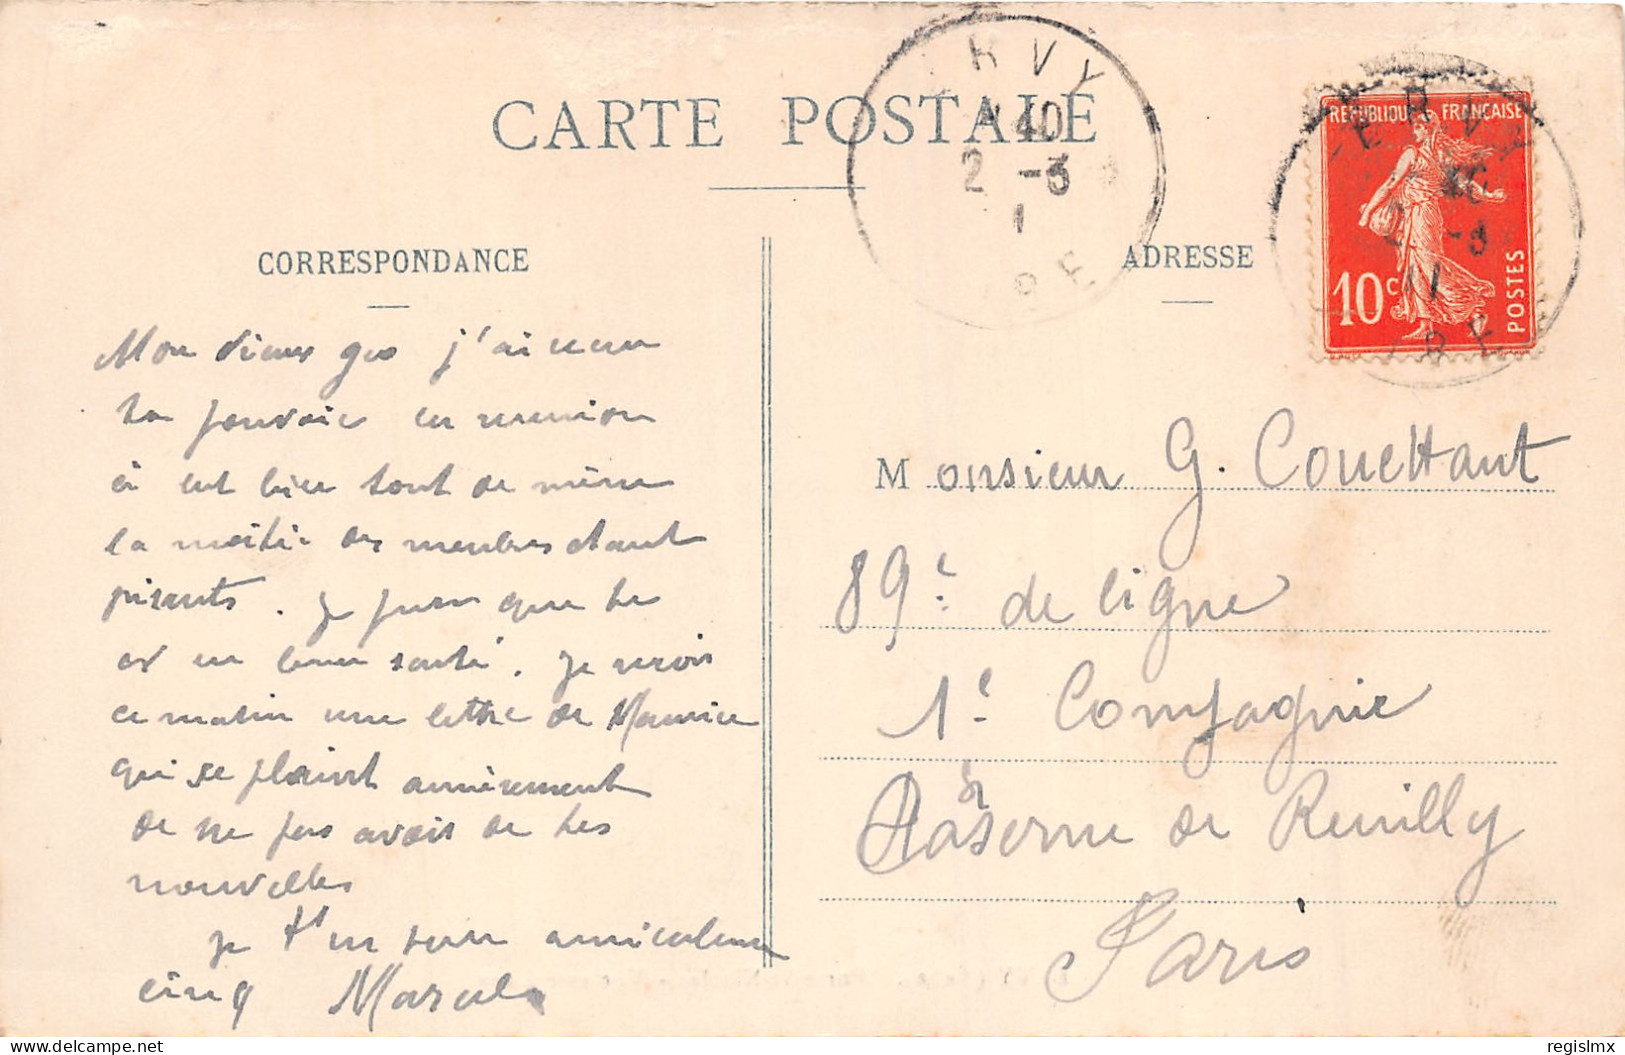 CARTE POSTALE
RVY
40
2 -3
1
BE
ERVY
2 -3
11
BE
RÉPUBLIQUE FRANÇAISE
10c
POSTES
CORRESPONDANCE
ADRESSE
Mon vieux j'ai
pouvoir en reunion
bien tout de même
la moitié des membres étant
. Je que tu
es en bonne santé. Je reçois
ce matin une lettre de Maurice
qui se plaint amèrement
de ne pas avoir de tes
nouvelles
Je t'en serre amicalement
cinq Marcel
Monsieur G. Couchant
89e de ligne
1e Compagnie
Caserne de Reuilly
Paris
www.delcampe.net
regislmx